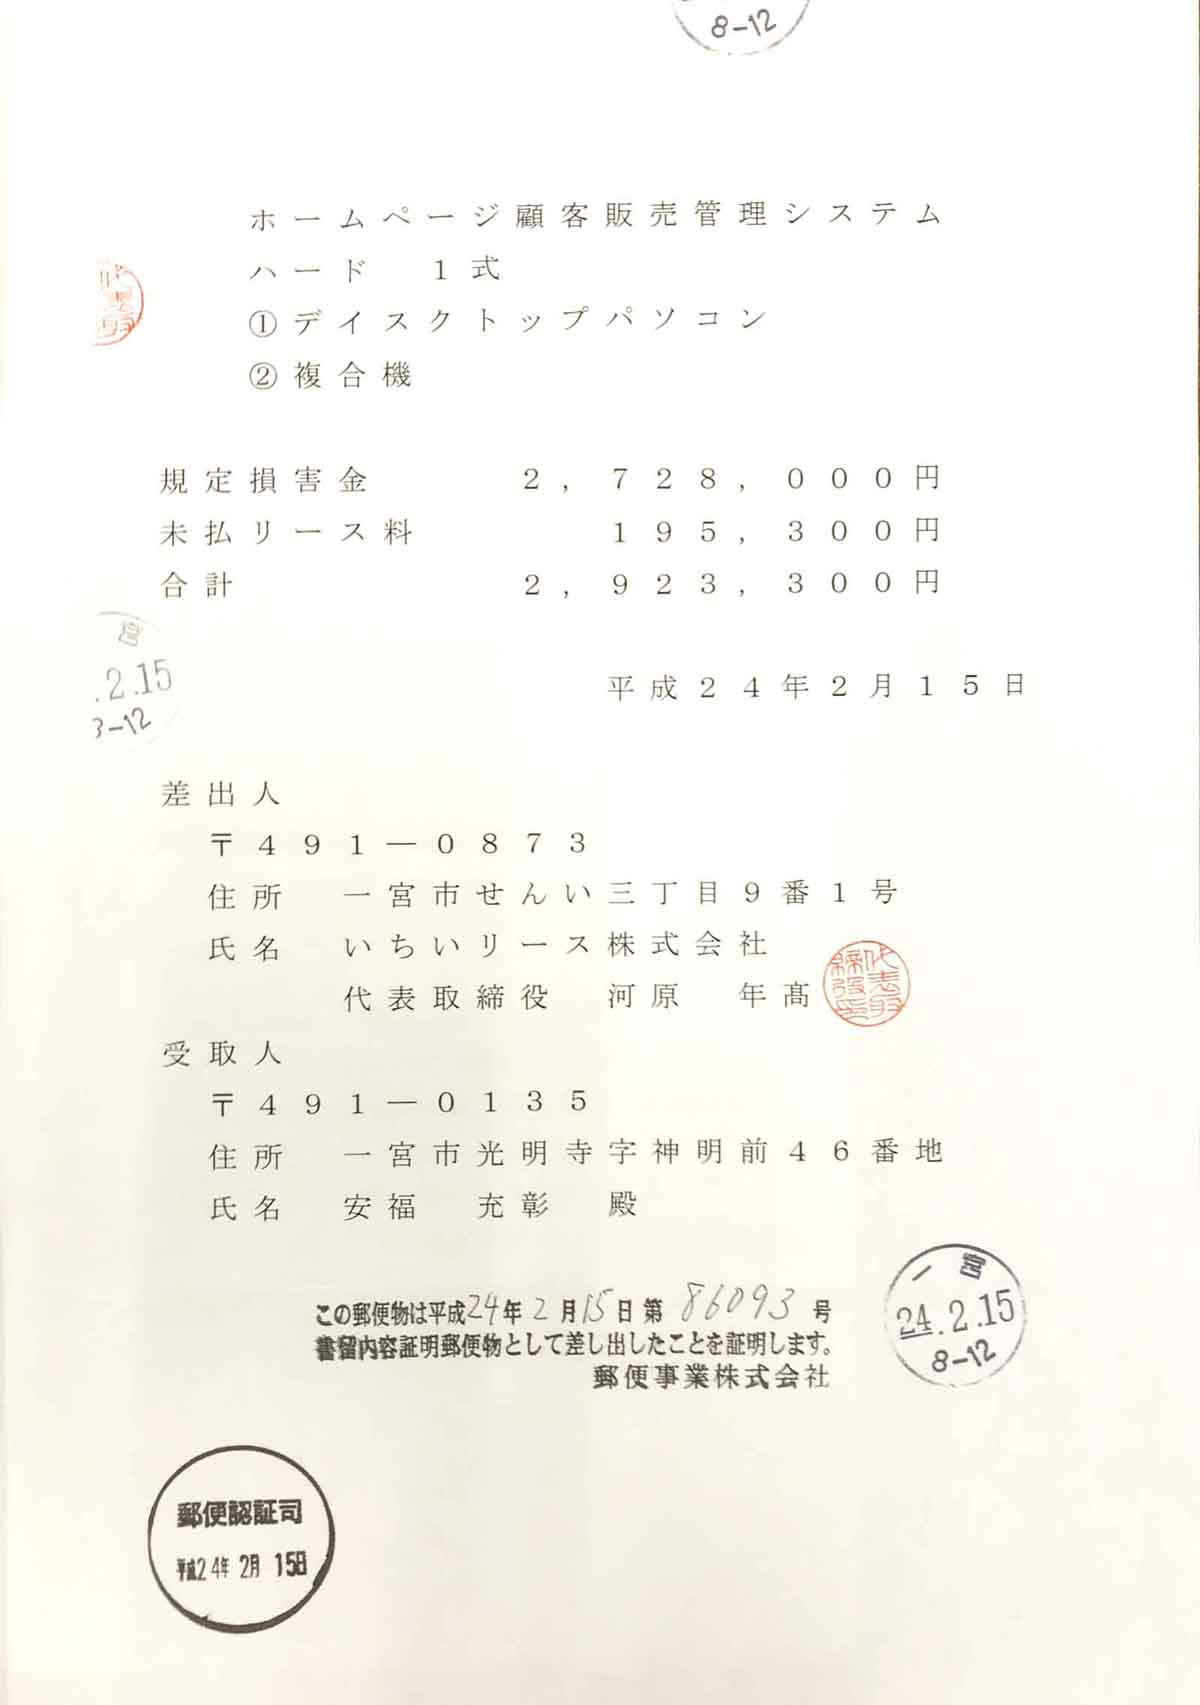 8-12
ホームページ顧客販売管理システム
ハード　1式
①デイスクトップパソコン
②複合機
規定損害金　2,728,000円
未払リース料　195,300円
合計　2,923,300円
宮
.2.15
8-12
平成24年2月15日
差出人
〒491―0873
住所　一宮市せんい三丁目9番1号
氏名　いちいリース株式会社
代表取締役　河原　年髙
代表取締役印
受取人
〒491―0135
住所　一宮市光明寺字神明前46番地
氏名　安福　充彰　殿
この郵便物は平成24年2月15日第86093号
書留内容証明郵便物として差し出したことを証明します。
郵便事業株式会社
一宮
24.2.15
8-12
郵便認証司
平成24年2月15日